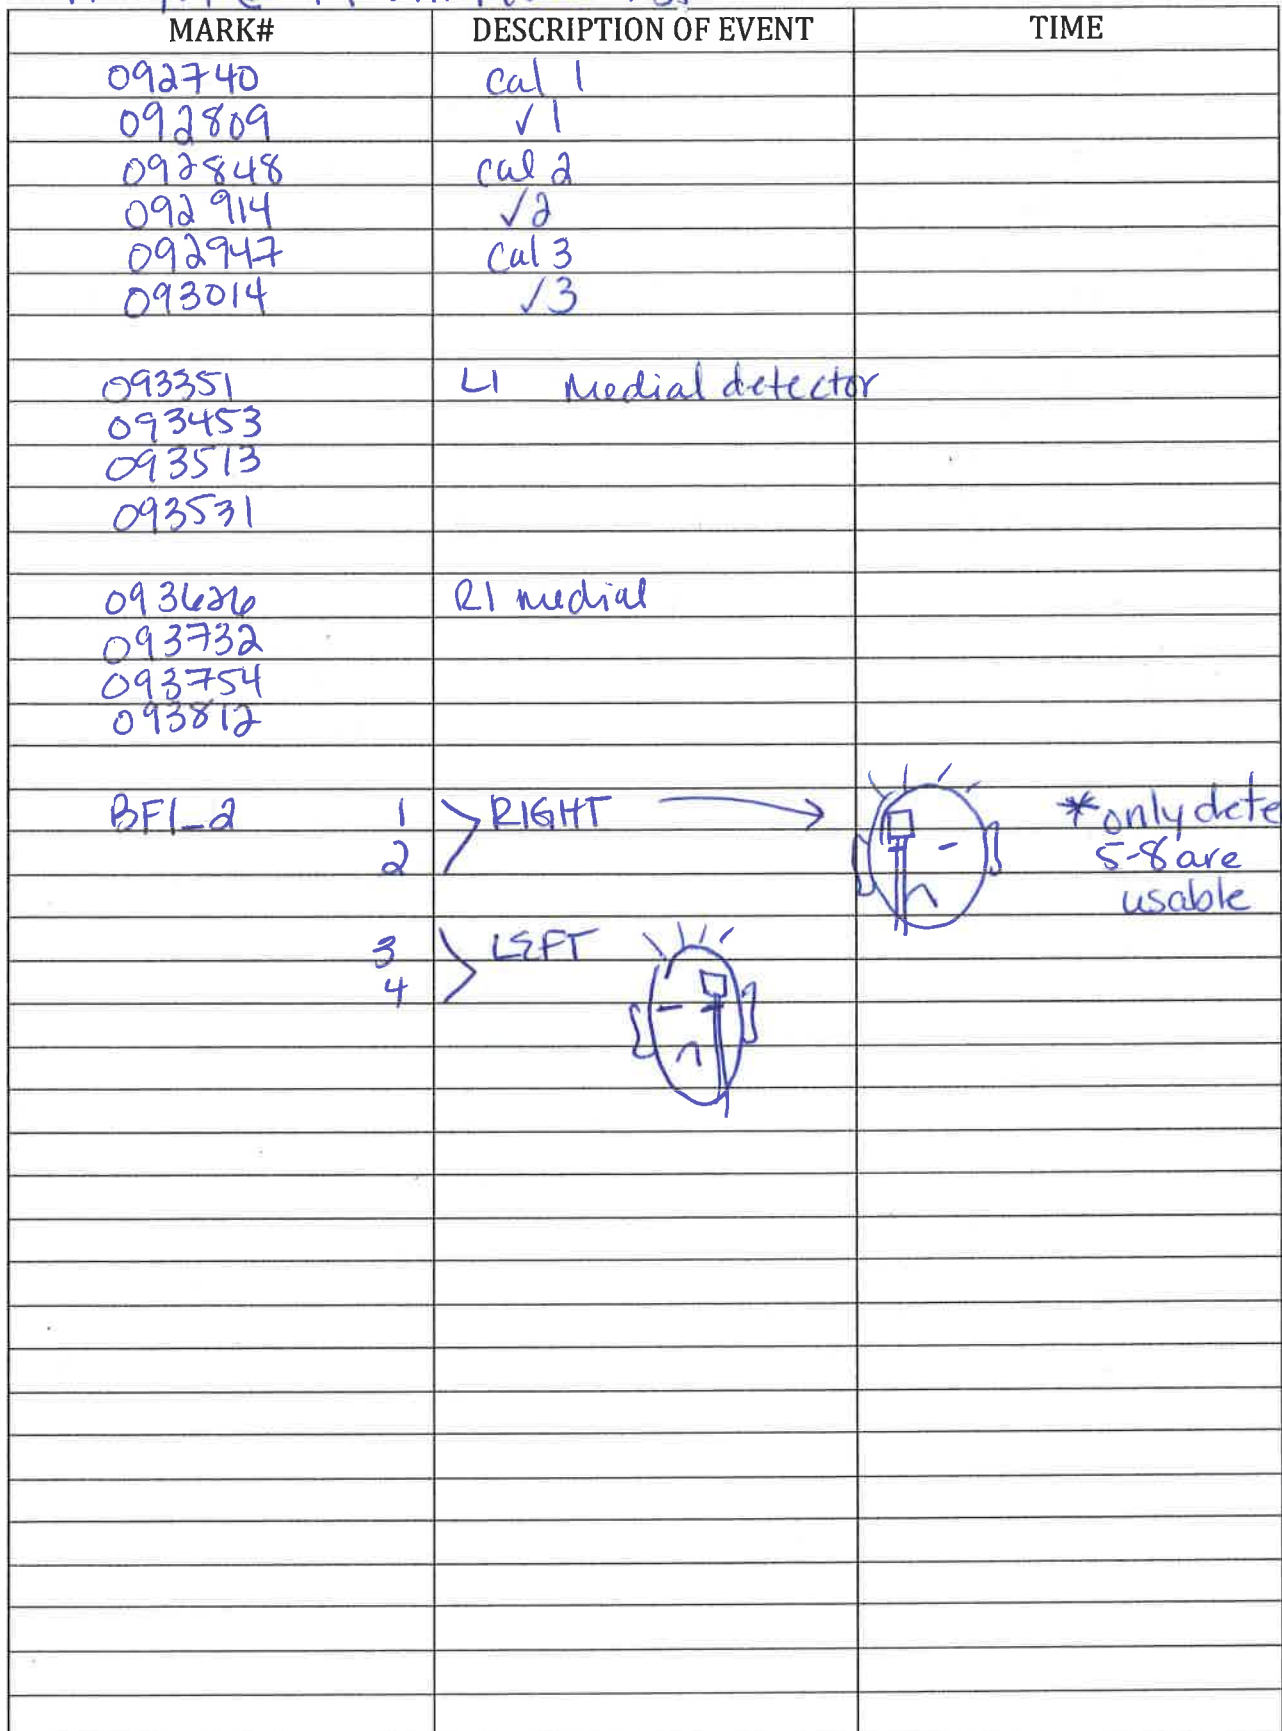 MARK# DESCRIPTION OF EVENT TIME
092740 cal 1
092809 √1
092848 cal 2
092914 √2
092947 cal 3
093014 √3
093351 L1 Medial detector
093453
093513
093531
093626 R1 medial
093732
093754
093812
BFI_2 1 > RIGHT → *only dete
2 5-8 are
usable
3 > LEFT
4